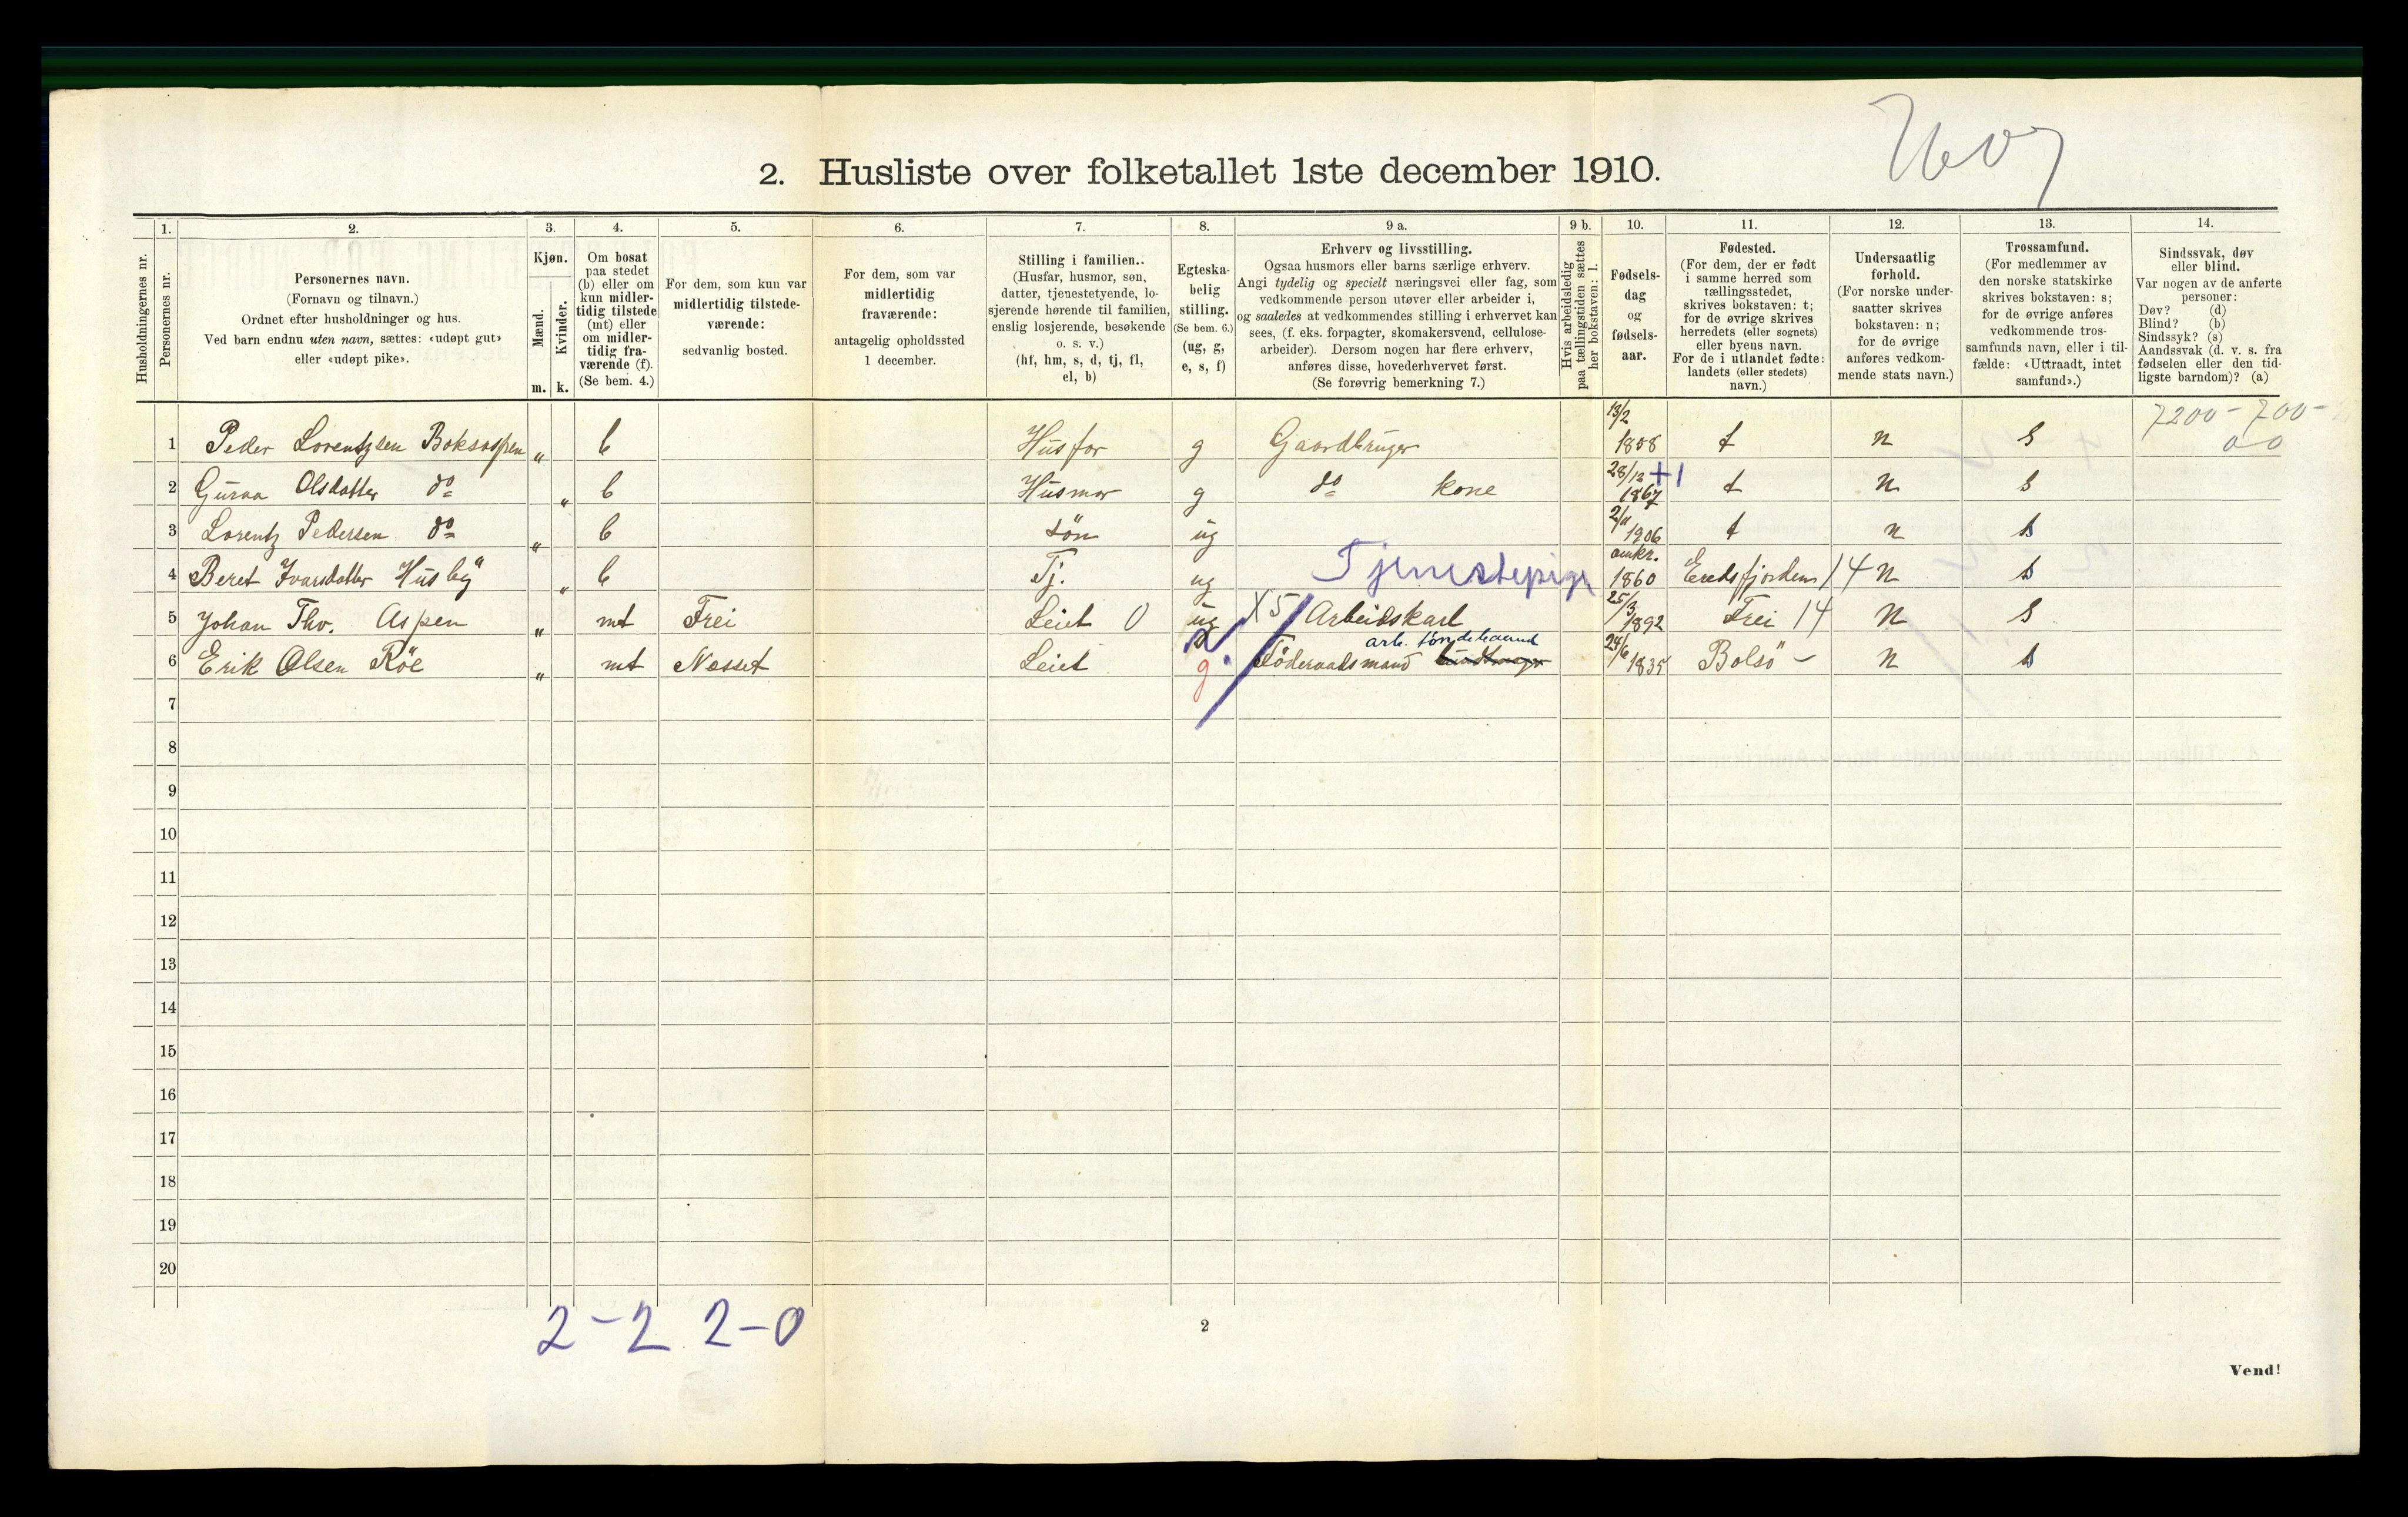 2. Husliste over folketallet 1ste december 1910.
1. 2. 3. 4. 5. 6. 7. 8. 9 a. 9 b. 10. 11. 12. 13. 14.
Husholdningernes nr.
Personernes nr.
Personernes navn.
(Fornavn og tilnavn.)
Ordnet efter husholdninger og hus.
Ved barn endnu uten navn, sættes: «udøpt gut»
eller «udøpt pike».
Kjøn.
Mænd.
Kvinder.
m. k.
Om bosat
paa stedet
(b) eller om
kun midler-
tidig tilstede
(mt) eller
om midler-
tidig fra-
værende (f).
(Se bem. 4.)
For dem, som kun var
midlertidig tilstede-
værende:
sedvanlig bosted.
For dem, som var
midlertidig
fraværende:
antagelig opholdssted
1 december.
Stilling i familien..
(Husfar, husmor, søn,
datter, tjenestetyende, lo-
sjerende hørende til familien,
enslig losjerende, besøkende
o. s. v.)
(hf, hm, s, d, tj, fl,
el, b)
Egteska-
belig
stilling.
(Se bem. 6.)
(ug, g,
e, s, f)
Erhverv og livsstilling.
Ogsaa husmors eller barns særlige erhverv.
Angi tydelig og specielt næringsvei eller fag, som
vedkommende person utøver eller arbeider i,
og saaledes at vedkommendes stilling i erhvervet kan
sees, (f. eks. forpagter, skomakersvend, cellulose-
arbeider). Dersom nogen har flere erhverv,
anføres disse, hovederhvervet først.
(Se forøvrig bemerkning 7.)
Hvis arbeidsledig
paa tællingstiden sættes
her bokstaven: l.
Fødsels-
dag
og
fødsels-
aar.
Fødested.
(For dem, der er født
i samme herred som
tællingsstedet,
skrives bokstaven: t;
for de øvrige skrives
herredets (eller sognets)
eller byens navn.
For de i utlandet fødte:
landets (eller stedets)
navn.)
Undersaatlig
forhold.
(For norske under-
saatter skrives
bokstaven: n;
for de øvrige
anføres vedkom-
mende stats navn.)
Trossamfund.
(For medlemmer av
den norske statskirke
skrives bokstaven: s;
for de øvrige anføres
vedkommende tros-
samfunds navn, eller i til-
fælde: «Uttraadt, intet
samfund».)
Sindssvak, døv
eller blind.
Var nogen av de anførte
personer:
Døv? (d)
Blind? (b)
Sindssyk? (s)
Aandssvak (d. v. s. fra
fødselen eller den tid-
ligste barndom)? (a)
7200 - 700 -
0 0
1 Peder Lorentzsen Boksaspen „ b Husfar g Gaardbruger 13/2 1858 t n S
2 Guraa Olsdatter do „ b Husmor g do kone 28/12 1867 +1 t n S
3 Lorentz Pedersen do „ b søn ug 2/11 1906 t n s
4 Beret Ivarsdatter Husby „ b Tj. ug Tjenestepige omkr. 1860 Eredsfjorden 14 n s
5 Johan Thv. Aspen „ mt Frei Leiet 0 ug X5 Arbeidskarl 25/3 1892 Frei 14 n S
arb. tøndebaand
6 Erik Olsen Röe „ mt Nesset Leiet g Föderaadsmand 24/6 1835 Bolsö - n s
7
8
9
10
11
12
13
14
15
16
17
18
19
20
2 - 2 2 - 0
2
Vend!